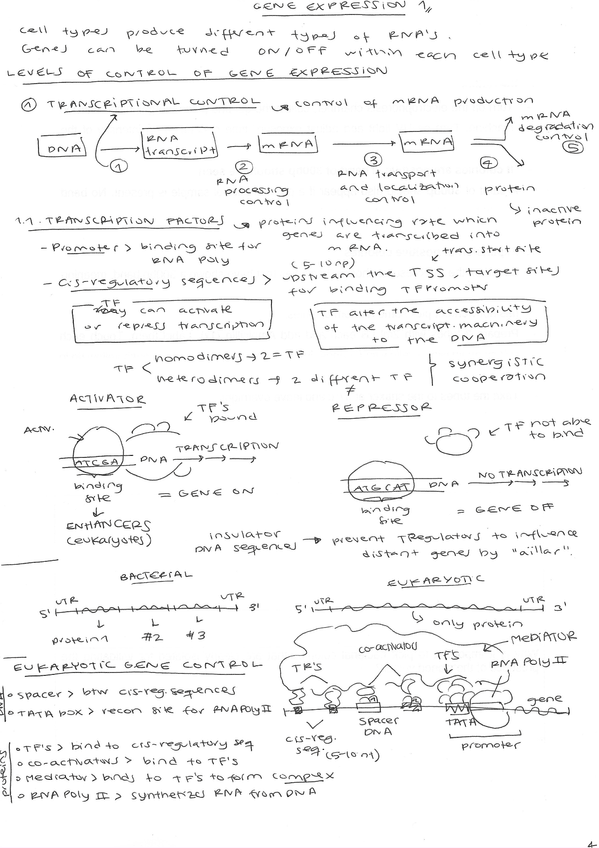 GENE EXPRESSION 1
cell types produce different types of RNA's.
Genes can be turned ON/OFF within each cell type
LEVELS OF CONTROL OF GENE EXPRESSION
① TRANSCRIPTIONAL CONTROL → control of mRNA production
DNA → RNA transcript → mRNA → mRNA
mRNA degradation control ⑤
① ② ③ ④
RNA processing control
RNA transport and localization control
protein
↳ inactive protein
1.1. TRANSCRIPTION FACTORS → proteins influencing rate which
genes are transcribed into
mRNA.
- Promoter > binding site for
RNA Poly
trans. start site
(5-10np)
- Cis-regulatory sequences > upstream the TSS, target sites
for binding TF
TF
can activate
or repress transcription
TF alter the accessibility
of the transcript. machinery
to the DNA
TF < homodimers → 2 = TF
heterodimers → 2 different TF
≠
} synergistic
cooperation
ACTIVATOR
REPRESSOR
Activ.
TF's
bound
TF not able
to bind
ATCGA DNA TRANSCRIPTION
ATGCAT DNA NO TRANSCRIPTION
binding
site
= GENE ON
binding
site
= GENE OFF
ENHANCERS
(eukaryotes)
insulator
DNA sequences → prevent TRegulators to influence
distant genes by
BACTERIAL
EUKARYOTIC
5' UTR UTR 3'
5' UTR UTR 3'
protein1 #2 #3
↳ only protein
EUKARYOTIC GENE CONTROL
MEDIATOR
co-activators
TR's
TFS
RNA Poly II
DNA
• spacer > btw cis-reg. sequences
• TATA box > recon site for RNA Poly II
gene
SPACER
DNA
TATA
cis-reg.
seq. (5-10nt)
promoter
proteins
• TF's > bind to cis-regulatory seq
• co-activators > bind to TF's
• Mediator > binds to TF's to form complex
• RNA Poly II > synthetizes RNA from DNA